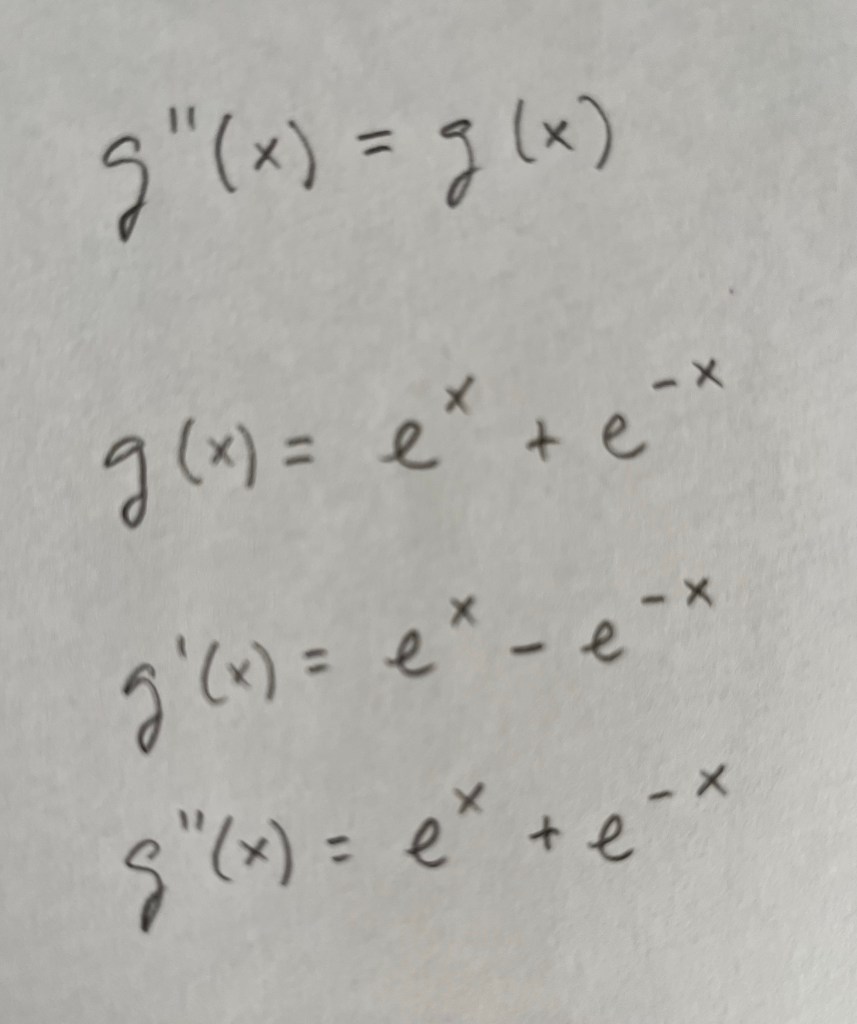 g''(x) = g(x)
g(x) = e^x + e^{-x}
g'(x) = e^x - e^{-x}
g''(x) = e^x + e^{-x}